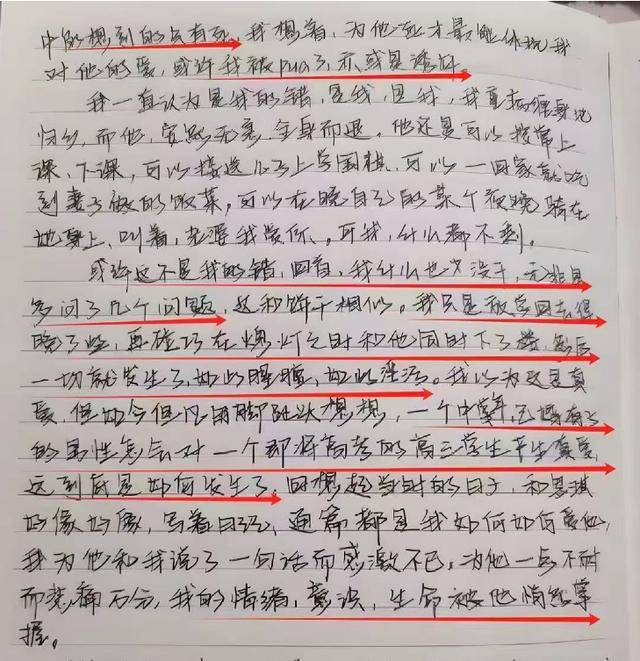 中能想到的点有死，我想着，为他死才最能体现我
对他的爱，或许我被pua了，亦或是活该。
我一直认为是我的错，是我，是我，我重病缠身地
归乡，而他，安然无恙，全身而退。他还是可以接常上
课、下课，可以接送儿子上学围棋，可以一回家就吃
到妻子做的饭菜，可以在晚自己的某个夜晚骑在
她身上，叫着，老婆我爱你、。可我，什么都不剩。
或许这不是我的错，回首，我什么也没干，无非是
多问了几个问题，这和饼干相似。我只是教学回去得
晚了些，再碰巧在熄灯之时和他同时下了楼，然后
一切就发生了，如此朦胧，如此。我以为这是真
爱，但如今但凡用脚趾头想想，一个中年，已婚有子
的男性怎会对一个即将高考的高三学生产生真爱，
这到底是如何发生了。回想起当时的日子，和思琪
好像好像，写着日记，通篇都是我如何如何爱他，
我为他和我说了一句话而感激不已，为他一点不耐
而悲痛万分，我的情绪，意识，生命被他悄然掌
握。